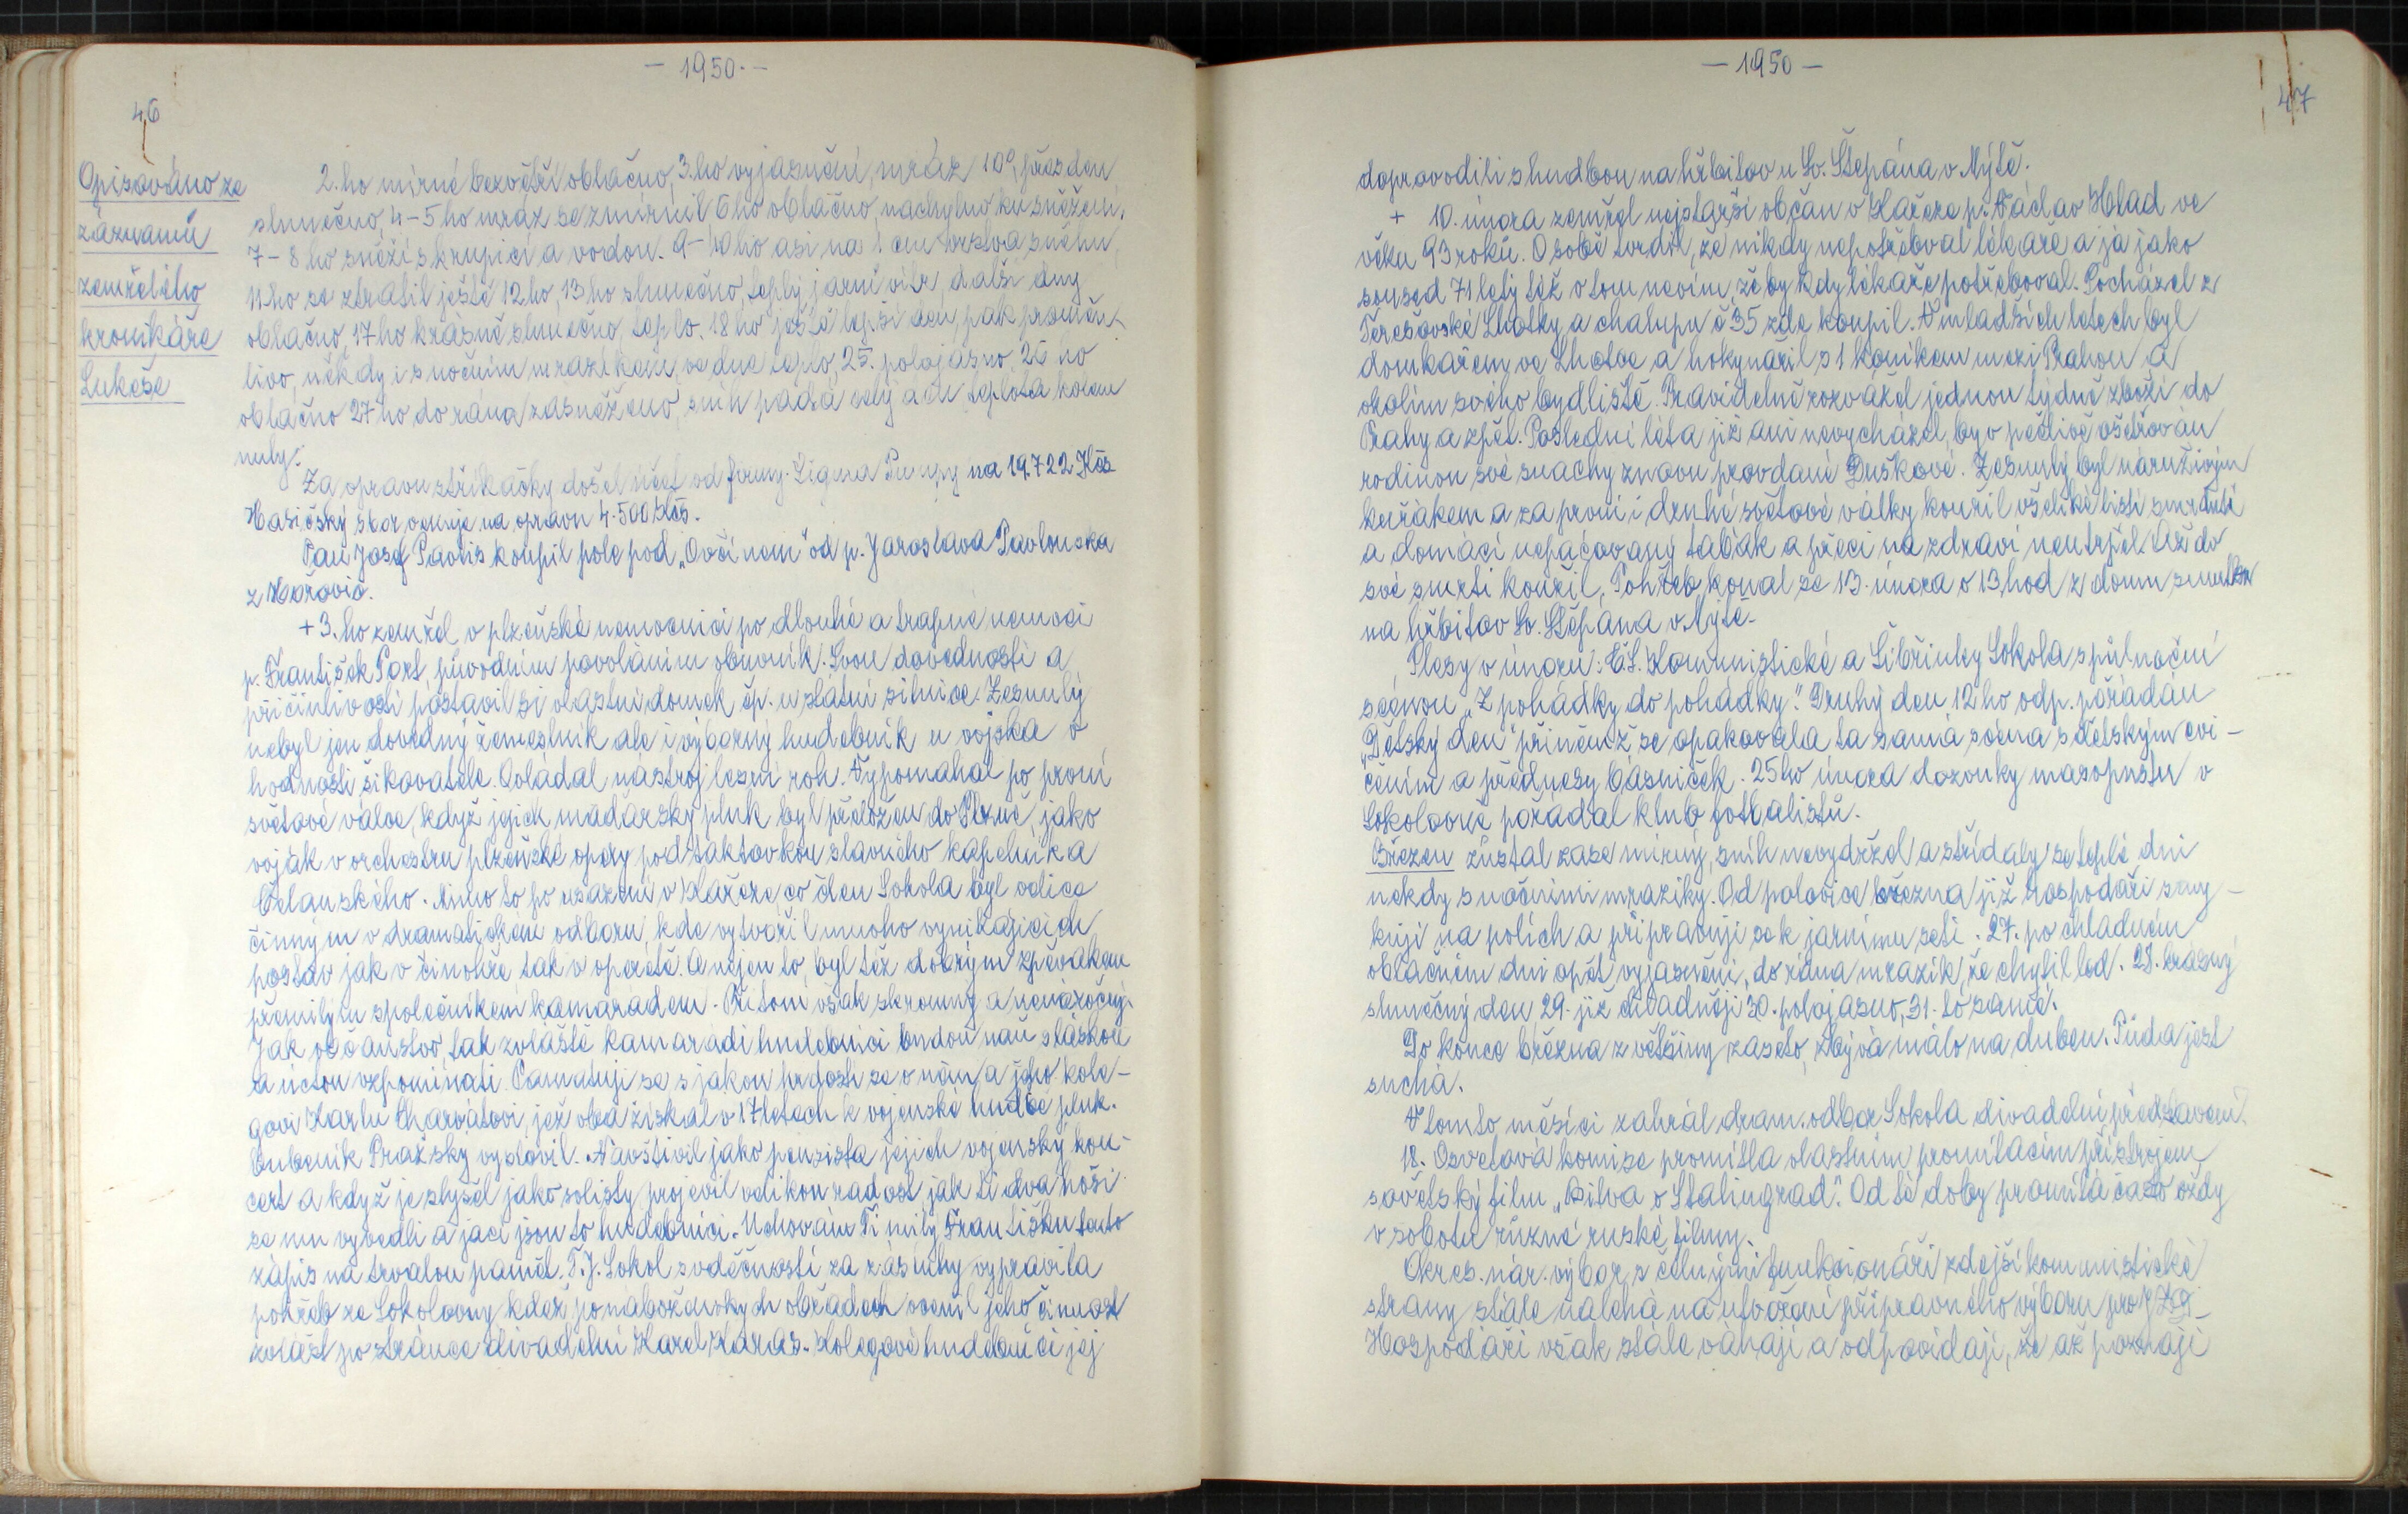 - 1950 -
46
Opisováno ze
záznamů
zemřelého
kronikáře
Lukeše
2.ho mírné bezvětří oblačno, 3.ho vyjasnění, mráz 10°, přes den
slunečno, 4-5 ho mráz se zmírnil 6 ho oblačno, nachylno ku sněžení.
7-8 ho sněží s krupicí a vodou. 9-10 ho asi na 1 cm vrstva sněhu,
11 ho se ztratil ještě 12 ho, 13 ho slunečno, teplý jarní vítr, další dny
oblačno, 17 ho krásně slunečno, teplo. 18 ho ještě lepší den, pak proměn-
livo, někdy i s nočním mrazíkem, ve dne teplo, 25. polojasno, 26 ho
oblačno 27 ho do rána zasněženo, sníh padá celý den teplota kolem
nuly.
Za opravu stříkačky došel účet od firmy Sigma Pumpy na 19.722 Kčs
Hasičský sbor věnuje na opravu 4.500 Kčs.
Pan Josef Pavlis koupil pole pod „Ovčínem" od p. Jaroslava Pavlouska
z Hořovic.
+ 3. ho zemřel v plzeňské nemocnici po dlouhé a trapné nemoci
p. František Port, původním povoláním obuvník. Svou dovedností a
přičinlivostí postavil si vlastní domek čp. u státní silnice. Zesnulý
nebyl jen dovedný řemeslník ale i výborný hudebník u vojska v
hodnosti šikovatele. Ovládal nástroj lesní roh. Vypomáhal po první
světové válce, když jejich maďarský pluk byl přeložen do Plzně, jako
voják v orchestru plzeňské opery pod taktovkou slavného kapelníka
Čelanského. Mimo to po usazení v Kařeze co člen Sokola byl velice
činným v dramatickém odboru, kde vytvořil mnoho vynikajících
postav jak v činohře tak v operetě. A nejen to, byl též dobrým zpěvákem
přemilým společníkem, kamarádem. Při tom však skromný a nenáročný.
Jak občanstvo, tak zvláště kamarádi hudebníci budou naň s láskou
a úctou vzpomínati. Pamatuji se s jakou hrdostí se o něm a jeho kole-
govi Karlu Charvátovi, jež oba získal v 17 letech k vojenské hudbě pluk.
bubeník Pražský vyslovil. Navštívil jako pensista jejich vojenský kon-
cert a když je slyšel jako solisty projevil velikou radost jak ti dva hoši
se mu vyvedli a jací jsou to hudebníci. Uchovám Ti milý Františku tento
zápis na trvalou paměť. T.J. Sokol s vděčností za zásluhy vypravila
pohřeb ze Sokolovny kdež po náboženských obřadech ocenil jeho činnost
zvlášť po stránce divadelní Karel Karas. Kolegové hudebníci jej
- 1950 -
47
doprovodili s hudbou na hřbitov u Sv. Štěpána v Mýtě.
+ 10. února zemřel nejstarší občan v Kařeze p. Václav Hlad ve
věku 93 roků. O sobě tvrdil, že nikdy nepotřeboval lékaře a já jako
soused 71 letý též o tom nevím, že by kdy lékaře potřeboval. Pocházel z
Terešovské Lhotky a chalupu č 35 zde koupil. V mladších letech byl
domkařem ve Lhotce a hokynařil s 1 koníkem mezi Prahou a
okolím svého bydliště. Pravidelně rozvážel jednou týdně zboží do
Prahy a zpět. Poslední léta již ani nevycházel, byv pečlivě ošetřován
rodinou své snachy znovu provdané Duškové. Zesnulý byl náruživým
kuřákem a za první i druhé světové války kouřil všeliké listí smrduté
a domácí nepačovaný tabák a přeci na zdraví neutrpěl. Až do
své smrti kouřil. Pohřeb konal se 13. února o 13 hod z domu smutku
na hřbitov Sv. Štěpána v Mýtě.
Plesy v únoru: Čš. Komunistické a Šibřinky Sokola s půlnoční
scénou „Z pohádky do pohádky". Druhý den 12 ho odp. pořádán
„Dětský den" přičemž se opakovala ta samá scéna s dětským cvi-
čením a přednesy básniček. 25 ho února dozvuky masopustu v
Sokolovně pořádal klub fotbalistů.
Březen zůstal zase mírný, sníh nevydržel a střídaly se teplé dni
někdy s nočními mrazíky. Od polovice března již hospodáři smy-
kují na polích a připravují se k jarnímu setí. 27. po chladném
oblačném dni opět vyjasnění, do rána mrazík, že chytil led. 28. krásný
slunečný den 29. již chladněji 30. polojasno, 31. to samé.
Do konce března z většiny zaseto, zbývá málo na duben. Půda jest
suchá.
V tomto měsíci zahrál dram. odbor Sokola divadelní představení.
18. Osvětová komise promítla vlastním promítacím přístrojem
sovětský film „Bitva o Stalingrad". Od té doby promítá často vždy
v sobotu různé ruské filmy.
Okres. nár. výbor s čelnými funkcionáři zdejší komunistické
strany stále naléhá na utvoření přípravného výboru pro JZD-
Hospodáři však stále váhají a odpovídají, že až poznají